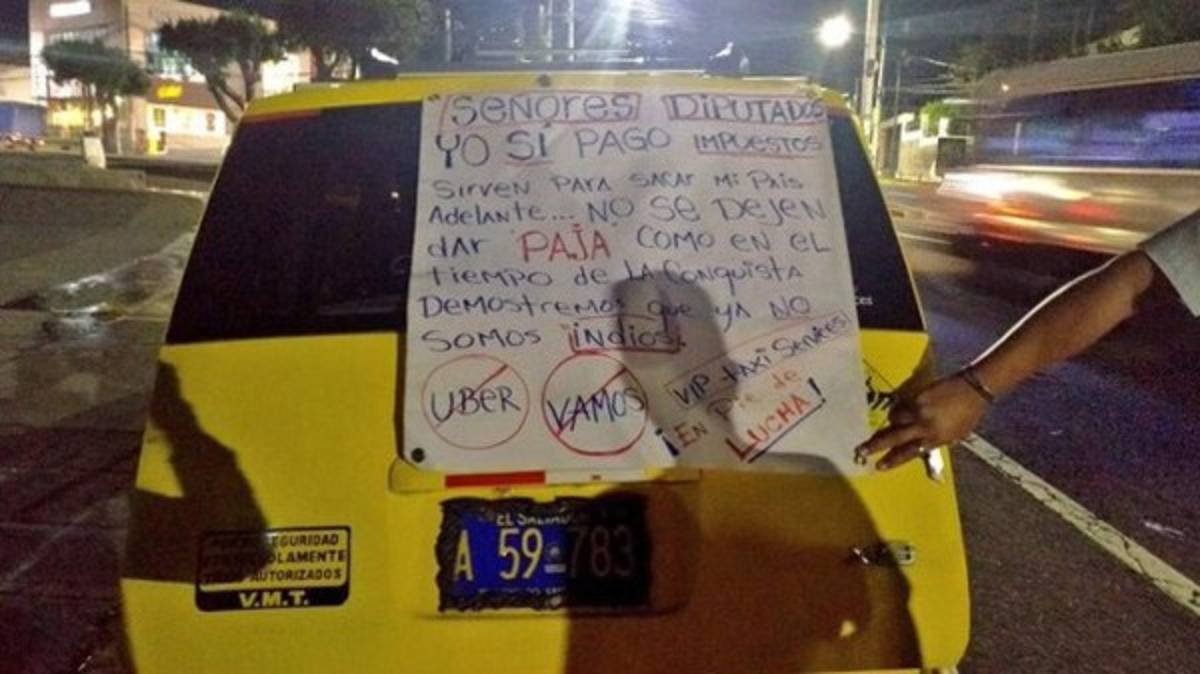 "SEÑORES DIPUTADOS
YO SÍ PAGO IMPUESTOS
SIRVEN PARA SACAR MI PAIS
ADELANTE... NO SE DEJEN
dAR "PAJA" COMO EN EL
TIEMPO de LA CONQUISTA
DEMOSTREMOS que YA NO
SOMOS "indios".
UBER VAMOS
VIP TAXI Services!
¡EN Pie de
LUCHA!
EL SALVADOR
A 59 783
SEGURIDAD
SOLAMENTE
AUTORIZADOS
V.M.T.